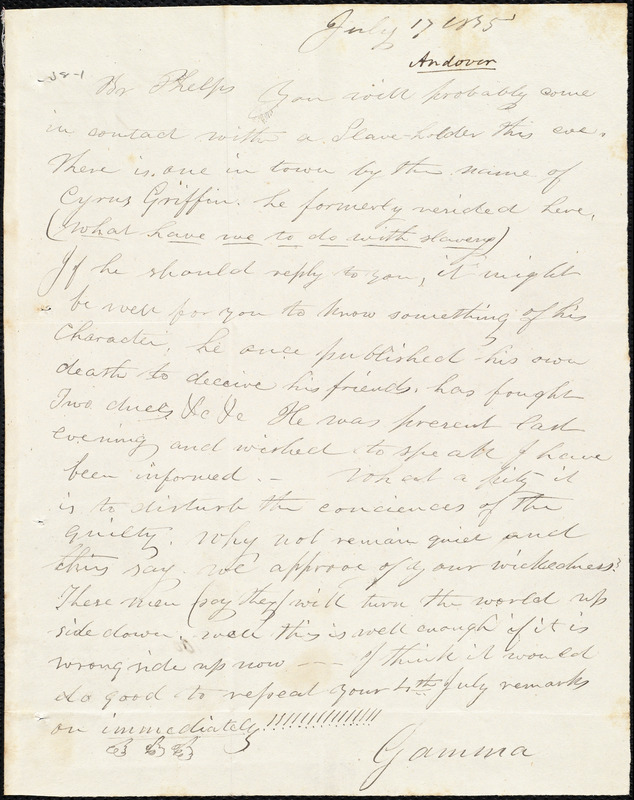 July 17 1835
Andover
Mr Phelps You will probably come
in contact with a Slave-holder this eve.
There is one in town by the name of
Cyrus Griffin. he formerly resided here,
(What have we to do with slavery)
If he should reply to you, it might
be well for you to know something of his
Character, he once published his own
death to deceive his friends. has fought
Two duels &c &c He was present last
evening and wished to speak I have
been informed. - What a pity it
is to disturb the conciences of the
guilty. Why not remain quiet and
thus say. we approve of your wickedness?
These men (say they) will turn the world up
side down. well this is well enough if it is
wrong side up now --- I think it would
do good to repeat your 4th July remarks
on immediately!!!!!!!!!!!!!!!
Gamma